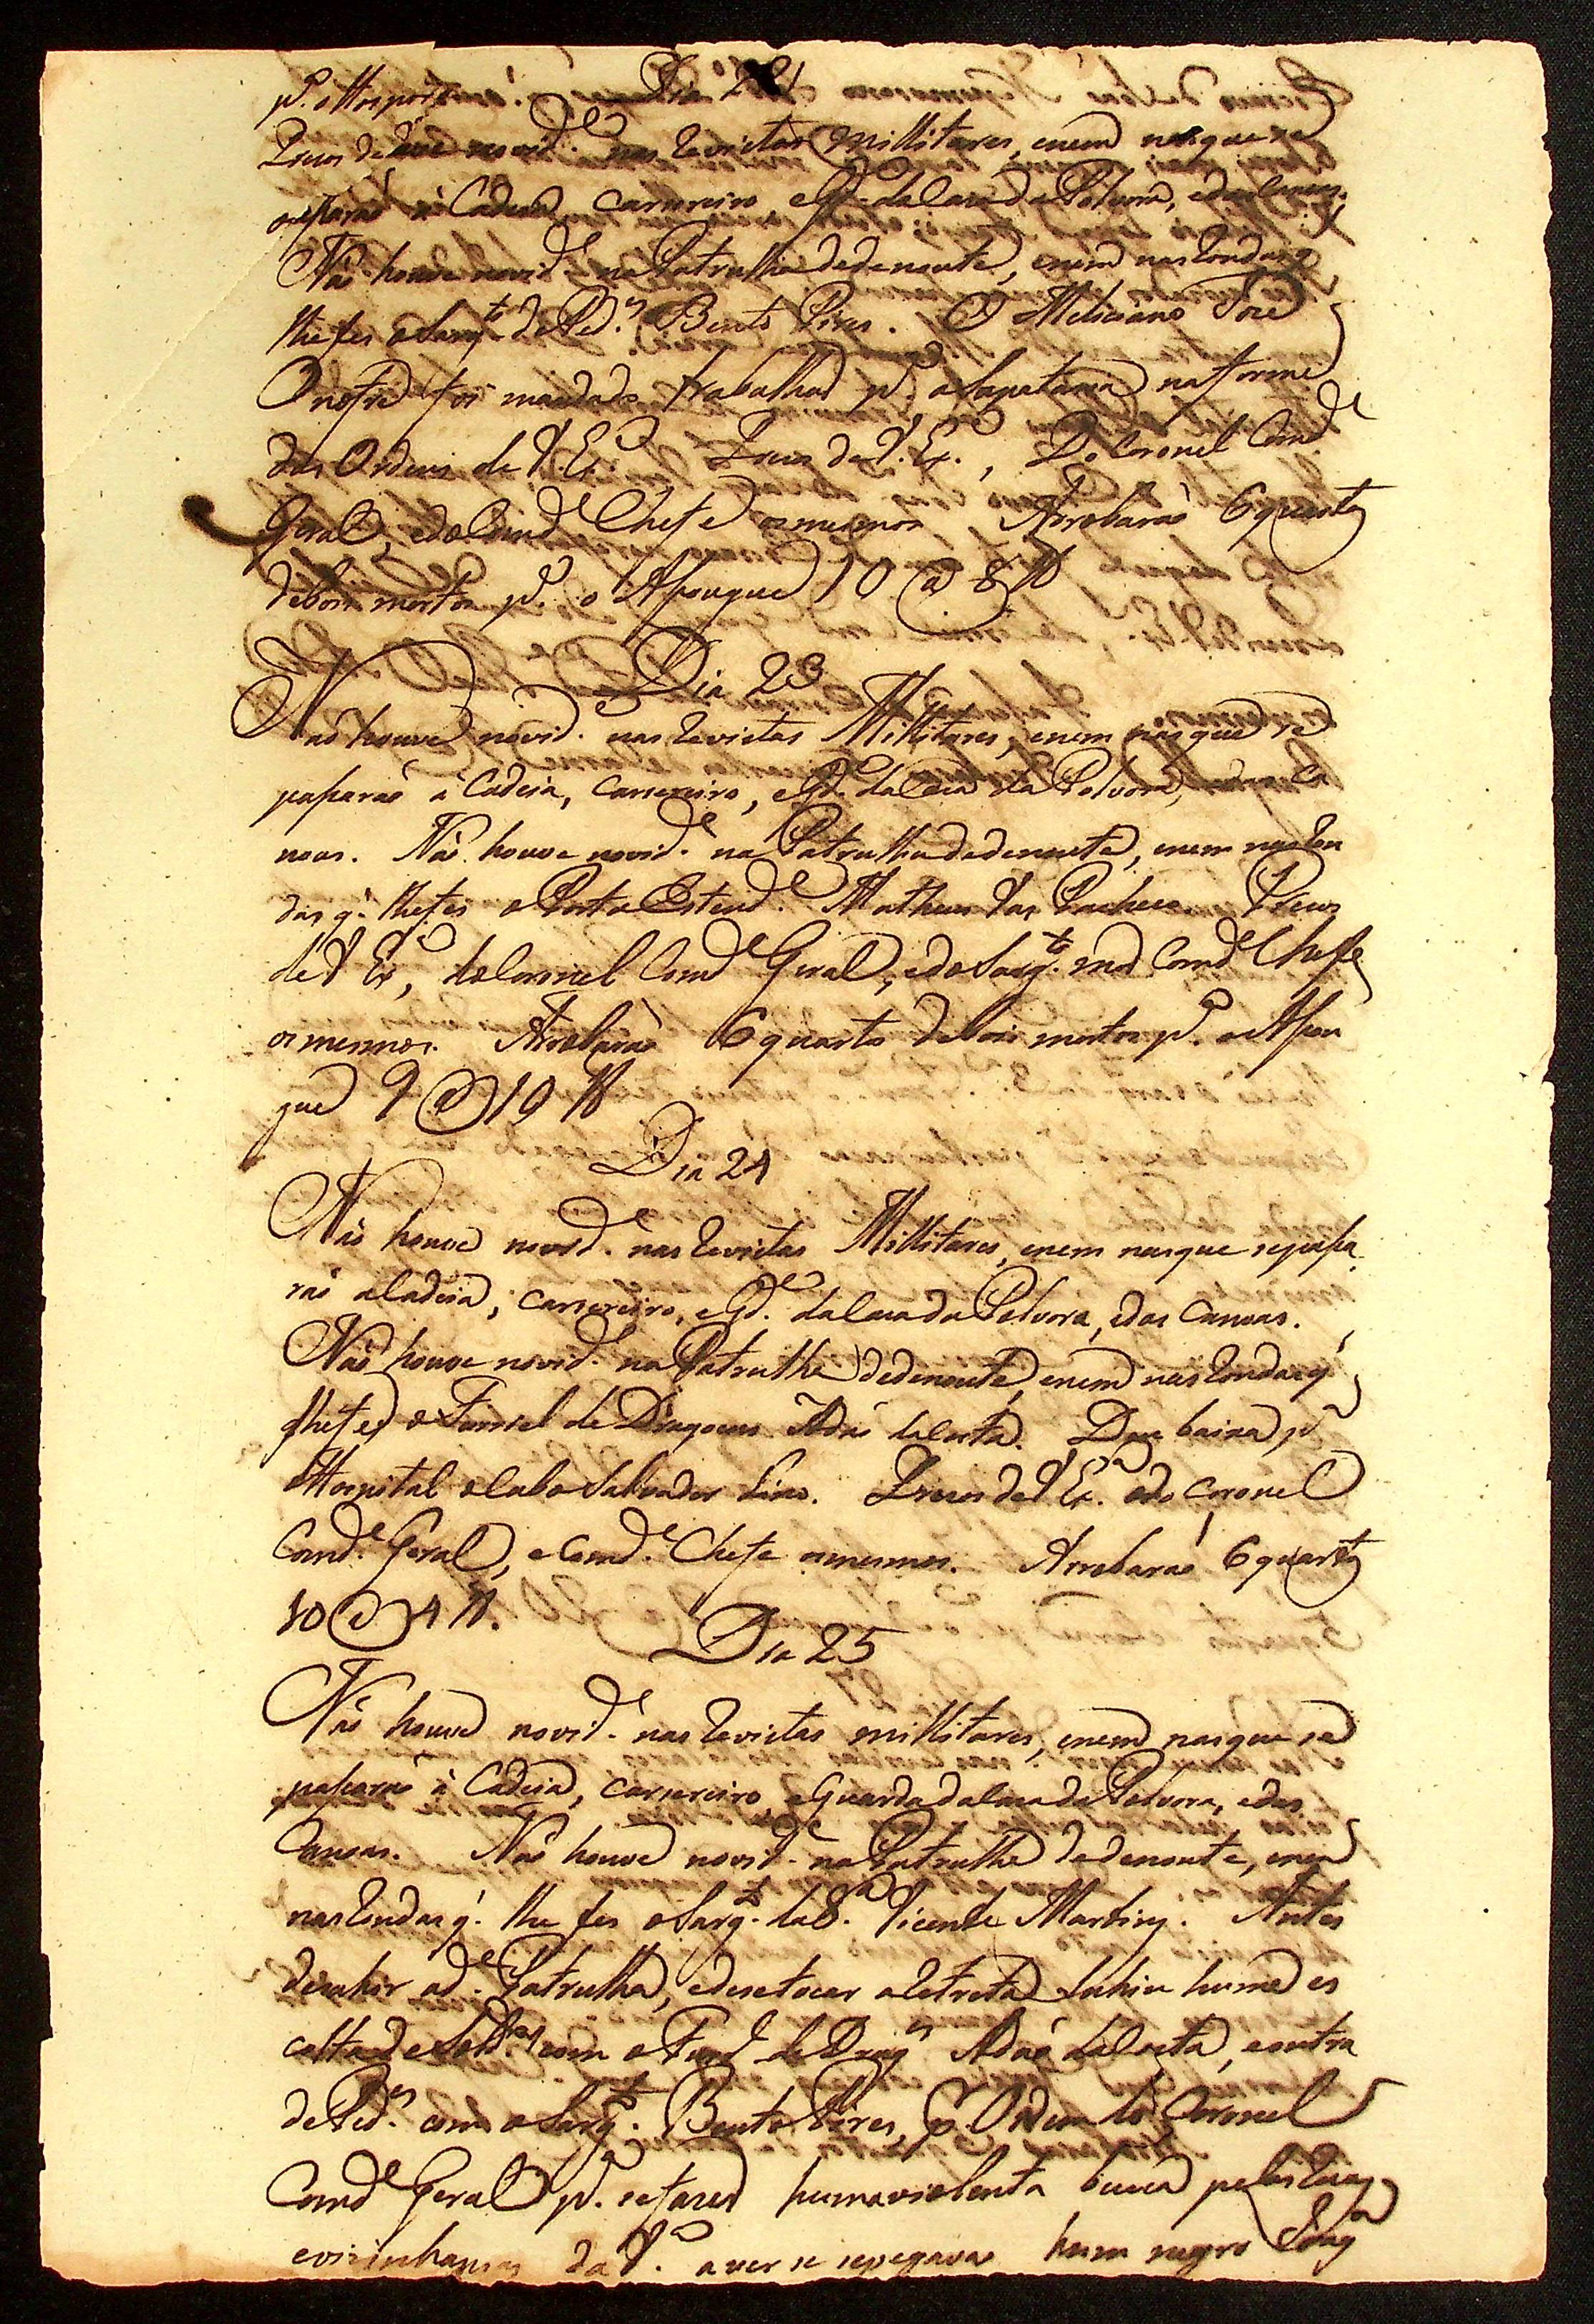 pª. o Hosp
Dia 22
novide. nas Revistas Millitares, enem nas que se
pasaraõ á Cadeia, carsereiro, eGde. da Caza da Polvora, edas Canoas.
Naõ houve novide. na Patrulha dedenoute, enem nas Rondas q'
lhe fes o Sargto. de Pedes. Bento Pires. O Meliciano Joze
Onofre foi mandado trabalhar pª. a Sapetuna na forma
das Ordens de V. Exª. de V. Exª., Do Coronel Comde
Geral, edo Comde Chefe os mesmos. Arrobaraõ 6 quartos
debois mortos pª. o Asougue 10 @ 8 ℔
Dia 23
Naõ houve novide. nas Revistas Millitares, enem nas que se
pasaraõ á Cadeia, Carsereiro, eGde. da Caza da Polvora, edas Ca
noas. Naõ houve novide. na Patrulha dedenoute, enem nas Ron
das q'. lhe fes o Porta Estende. Matheus Vas Pacheco.
de V. Exª, do Coronel Comde Geral, edo Sargto. mor Comde Chefe
os mesmos. Arrobaraõ 6 quartos debois mortos pª. o Asou
gue 9 @ 19 ℔
Dia 24
Naõ houve novide. nas Revistas Millitares, enem nas que sepasa
raõ a Cadeia, carsereiro, eGde. da Caza da Polvora, edas Canoas.
Naõ houve novide. na Patrulha dedenoute, enem nas Rondas q'
lhe fes o Furriel de Dragoens Adaõ daCosta. Deu baixa pª
o Hospital o Cabo Salvador Lino. de V. Exª. edo Coronel
Comde. Geral, eComde. Chefe os mesmos. Arrobaraõ 6 quartos
10 @ 4 ℔.
Dia 25
Naõ houve novide. nas Revistas millitares, enem nas que se
pasaraõ á Cadeia, carsereiro eGuarda da Caza da Polvora, edas
Canoas. Naõ houve novide. na Patrulha dedenoute, enem
nas Rondas q'. lhe fes o Sargto. da 8ª. Vicente Martins. Antes
desahir ade. Patrulha, edesetocar aRetreta Sahiu huma es
colta de Soldos com o Furel de Drags Adaõ daCosta, eoutra
de Pedes. com o Sargto. Bento Pires, pr Ordem do Coronel
Comde Geral pª. sefazer huma violenta busca pelas Ruas
evizinhansas da Vª. a ver se sepegava hum negro